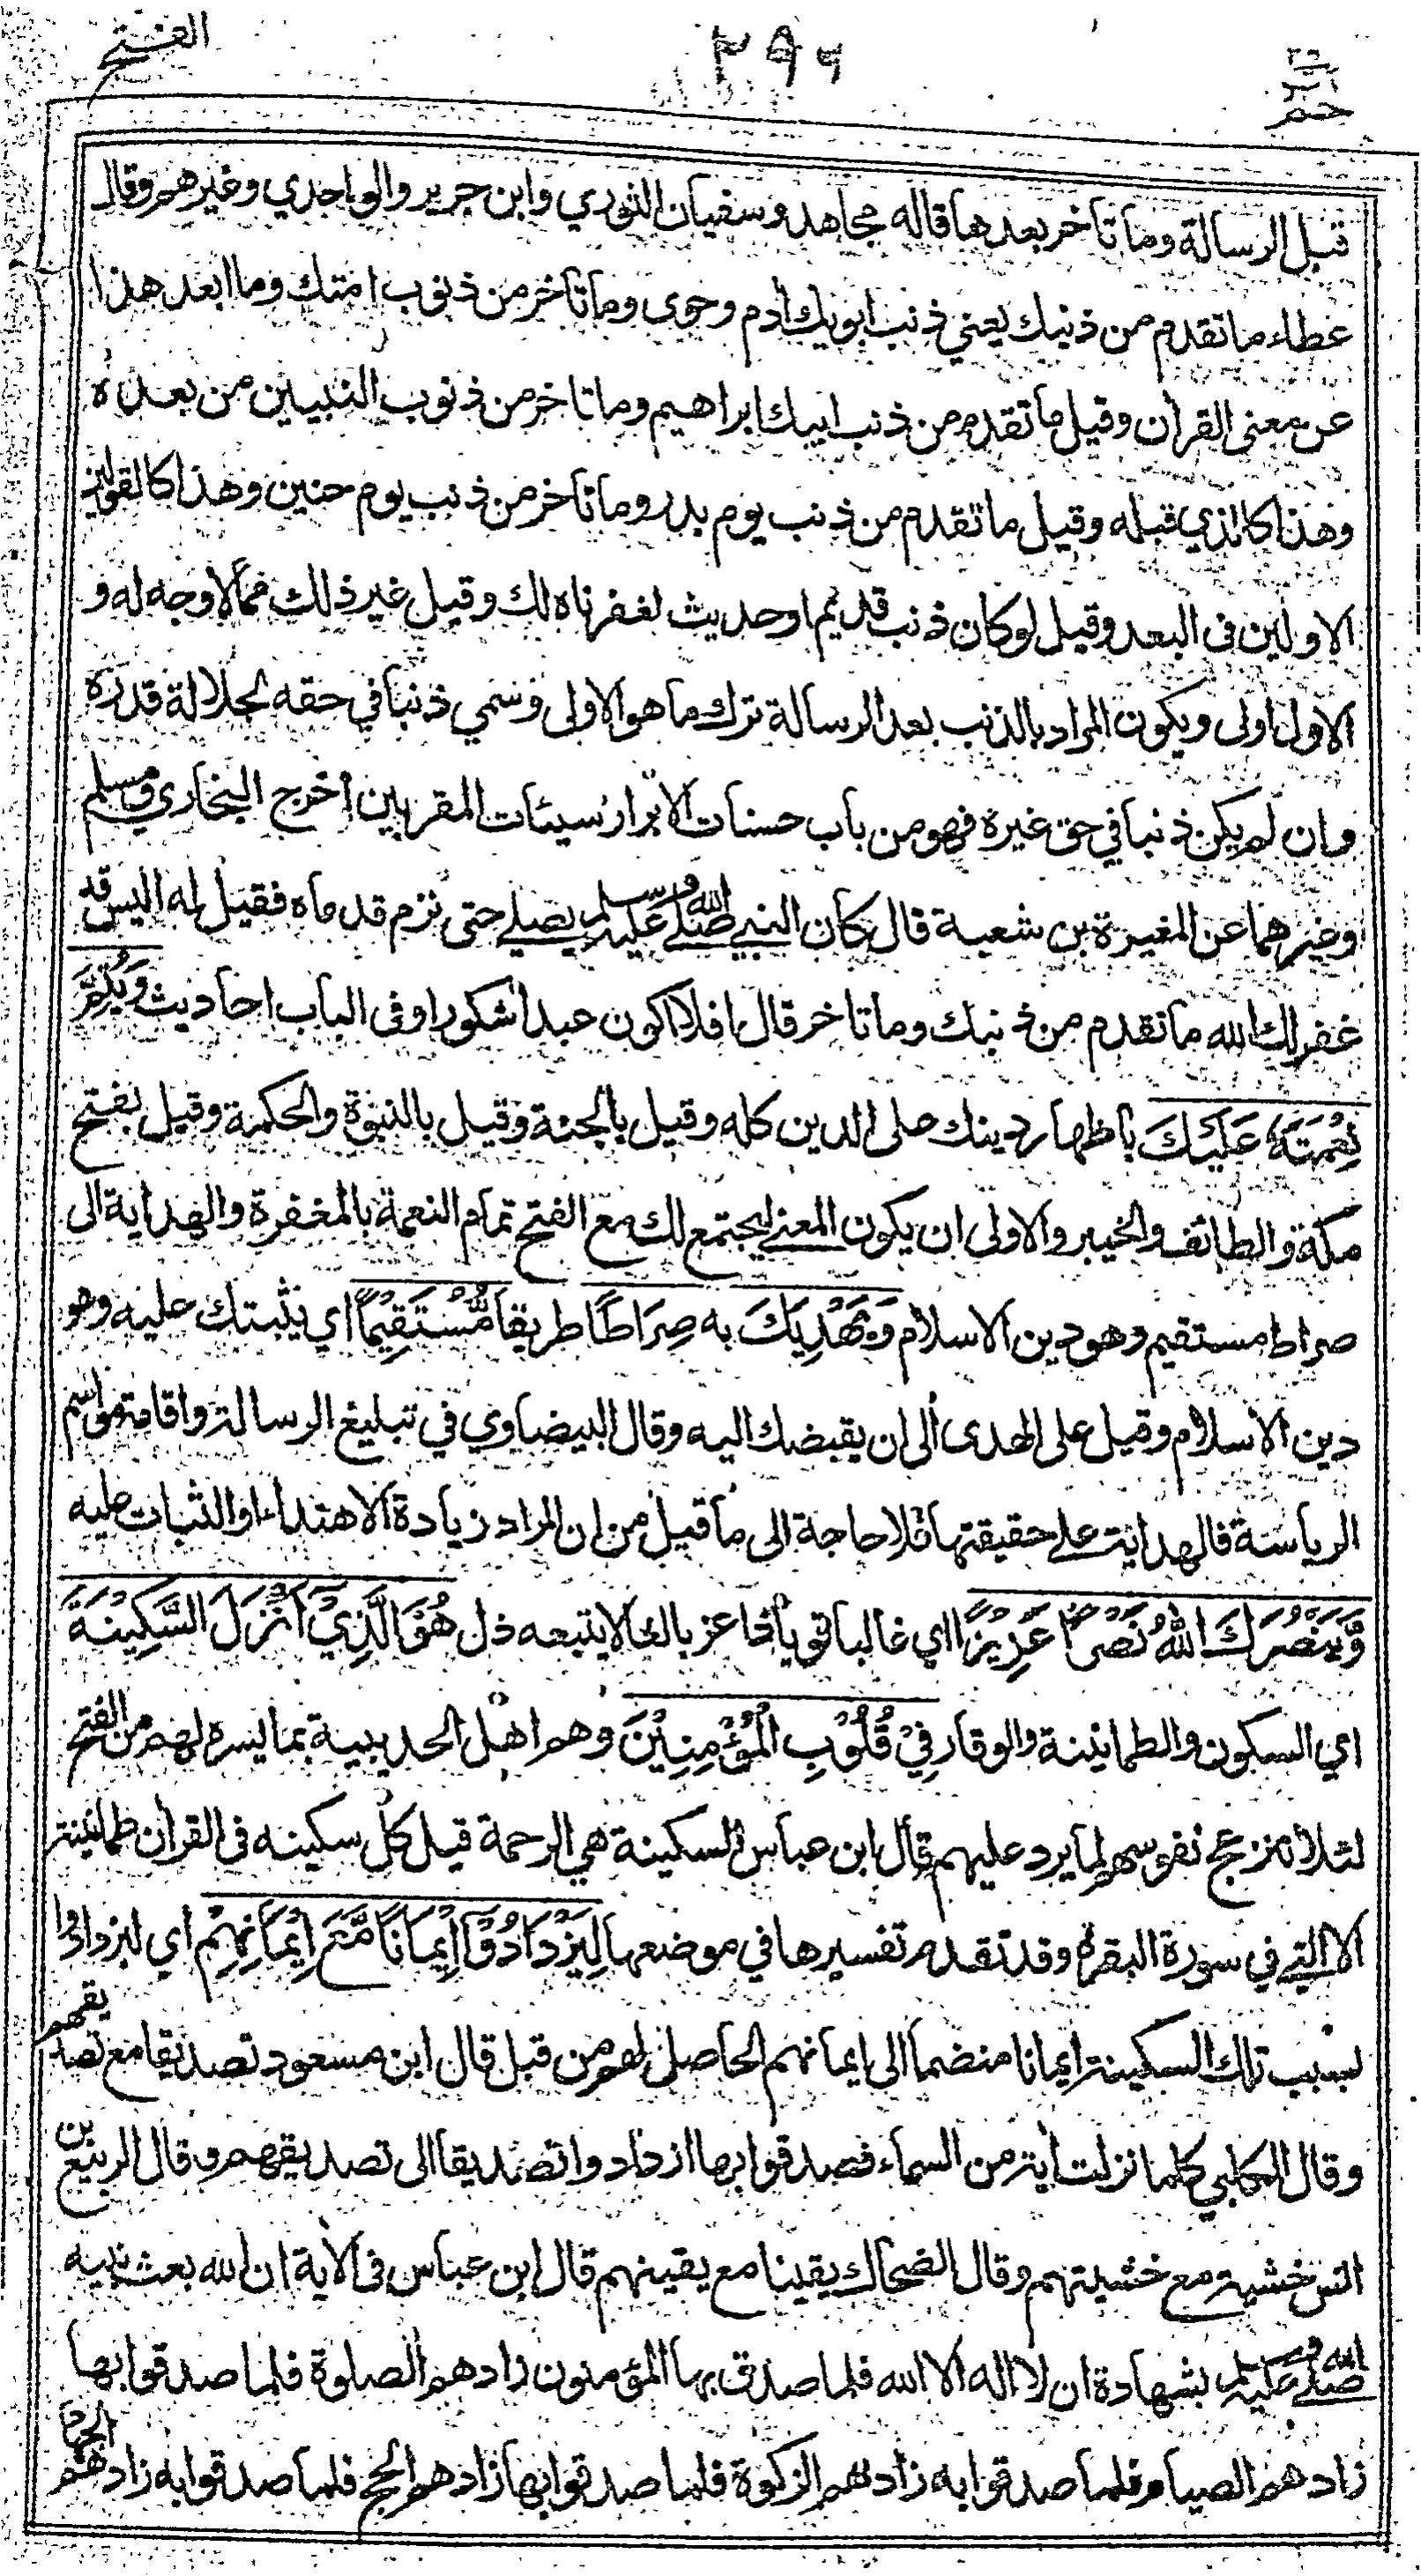 الفتح
٢٩٦
٢٦
حم
قبل الرسالة وما تاخر بعدها قاله مجاهد وسفيان الثوري وابن جرير والواحدي وغيرهم وقال
عطاء ما تقدم من ذنبك يعني ذنب ابويك أدم وحوى وما تاخر من ذنوب امتك وما ابعد هذا
عن معنى القرأن وقيل ما تقدم من ذنب ابيك ابراهيم وما تاخر من ذنوب النبيين من بعده
وهذا كالذي قبله وقيل ما تقدم من ذنب يوم بدر وما تاخر من ذنب يوم حنين وهذا كالقولين
الاولين فى البعد وقيل لو كان ذنب قديم او حديث لغفرناه لك وقيل غير ذلك مما لا وجه له و
الاول اولى ويكون المراد بالذنب بعد الرسالة ترك ما هو الاولى وسمي ذنبا في حقه لجلالة قدره
وان لم يكن ذنبا في حق غيره فهو من باب حسنات الابرار سيئات المقربين أخرج البخاري ومسلم
وغيرهما عن المغيرة بن شعبة قال كان النبي صلى الله عليه وسلم يصلي حتى ترم قدماه فقيل له اليس قد
غفر لك الله ما تقدم من ذنبك وما تاخر قال افلا اكون عبدا شكورا وفى الباب احاديث وَيُتِمَّ
نِعْمَتَهُ عَلَيْكَ باظهار دينك على الدين كله وقيل بالجنة وقيل بالنبوة والحكمة وقيل بفتح
مكة والطائف والخيبر والاولى ان يكون المعنى ليجتمع لك مع الفتح تمام النعمة بالمغفرة والهداية الى
صراط مستقيم وهو دين الاسلام وَيَهْدِيَكَ به صِرَاطًا طريقا مُّسْتَقِيْمًا اي يثبتك عليه وهو
دين الاسلام وقيل على الهدى الى ان يقبضك اليه وقال البيضاوي في تبليغ الرسالة واقامة مراسم
الرياسة فالهداية على حقيقتها فلا حاجة الى ما قيل من ان المراد زيادة الاهتداء او الثبات عليه
وَّيَنْصُرَكَ اللّٰهُ نَصْرًا عَزِيْزًا اي غالبا قويا ذا عز بالغا لا يتبعه ذل هُوَ الَّذِيْٓ اَنْزَلَ السَّكِيْنَةَ
اي السكون والطمانينة والوقار فِيْ قُلُوْبِ الْمُؤْمِنِيْنَ وهم اهل الحديبية بما يسره لهم من الفتح
لئلا تنزعج نفوسهم لما يرد عليهم قال ابن عباس السكينة هي الرحمة قيل كل سكينه فى القرأن طمانينة
الا التي في سورة البقرة وقد تقدم تفسيرها في موضعها لِيَزْدَادُوْٓا اِيْمَانًا مَّعَ اِيْمَانِهِمْ اي ليزدادوا
بسبب تلك السكينة ايمانا منضما الى ايمانهم الحاصل لهم من قبل قال ابن مسعود تصديقا مع تصديقهم
وقال الكلبي كلما نزلت أية من السماء فصدقوا بها ازدادوا تصديقا الى تصديقهم وقال الربيع بن
انس خشية مع خشيتهم وقال الضحاك يقينا مع يقينهم قال ابن عباس فى الاية ان الله بعث نبيه
صلى الله عليه وسلم بشهادة ان لا اله الا الله فلما صدق بها المؤمنون زادهم الصلوة فلما صدقوا بها
زادهم الصيام فلما صدقوا به زادهم الزكوة فلما صدقوا بها زادهم الحج فلما صدقوا به زادهم الجهاد